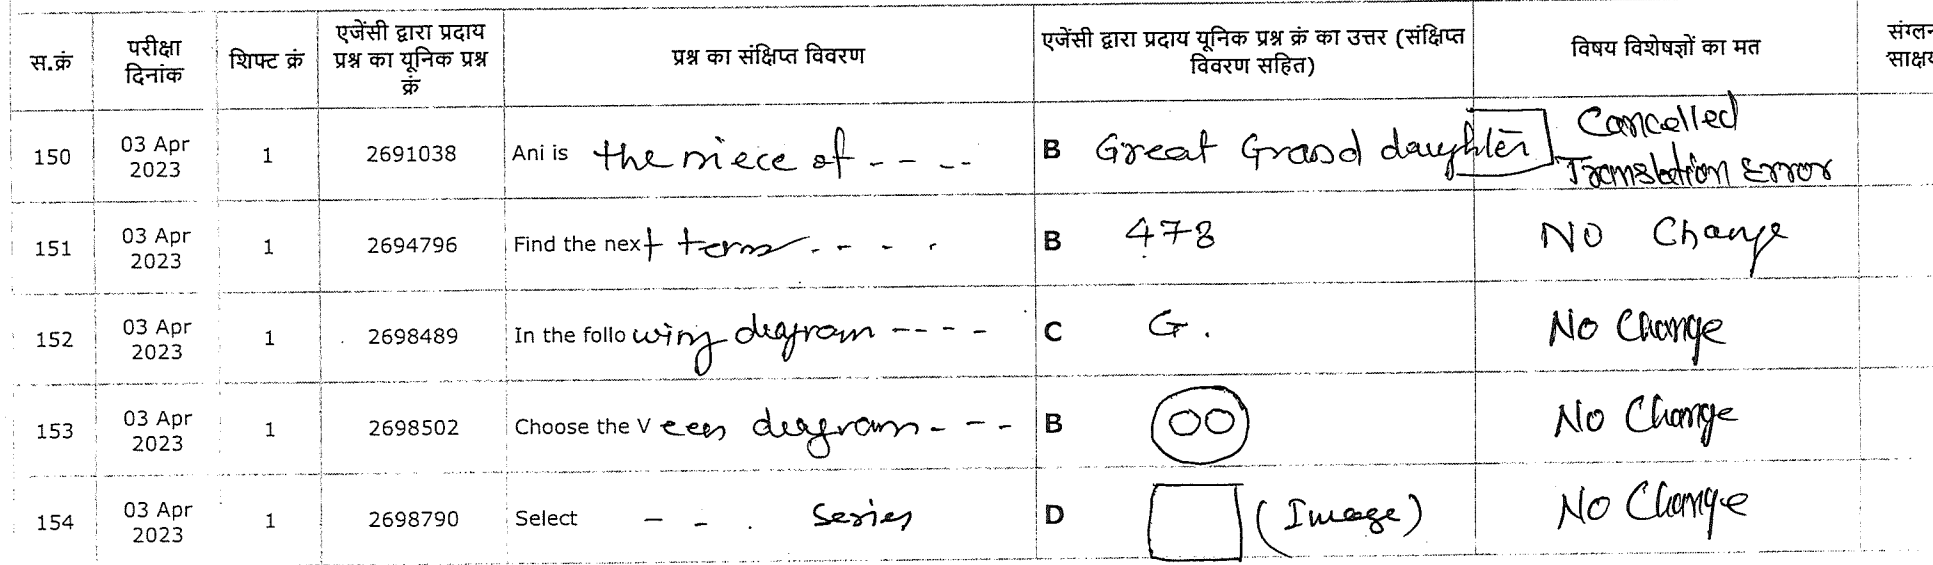 स.क्रं परीक्षा दिनांक शिफ्ट क्रं एजेंसी द्वारा प्रदाय प्रश्न का यूनिक प्रश्न क्रं प्रश्न का संक्षिप्त विवरण एजेंसी द्वारा प्रदाय यूनिक प्रश्न क्रं का उत्तर (संक्षिप्त विवरण सहित) विषय विशेषज्ञों का मत
150 03 Apr 2023 1 2691038 Ani is the niece of - - -- B Great Grand daughter Cancelled Translation Error
151 03 Apr 2023 1 2694796 Find the next term - - - . B 473 NO Change
152 03 Apr 2023 1 2698489 In the following degram ---- C G. No Change
153 03 Apr 2023 1 2698502 Choose the Veen degram - - - B No Change
154 03 Apr 2023 1 2698790 Select - - . series D (Image) No Change